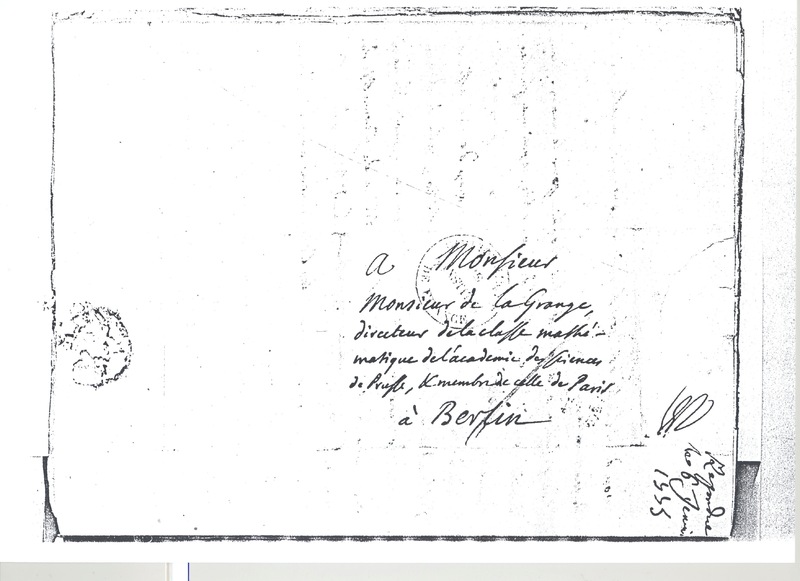 A Monsieur
Monsieur de la Grange,
directeur de la classe mathé-
matique de l'academie des sciences
de Prusse, & membre de celle de Paris
à Berlin
le 6